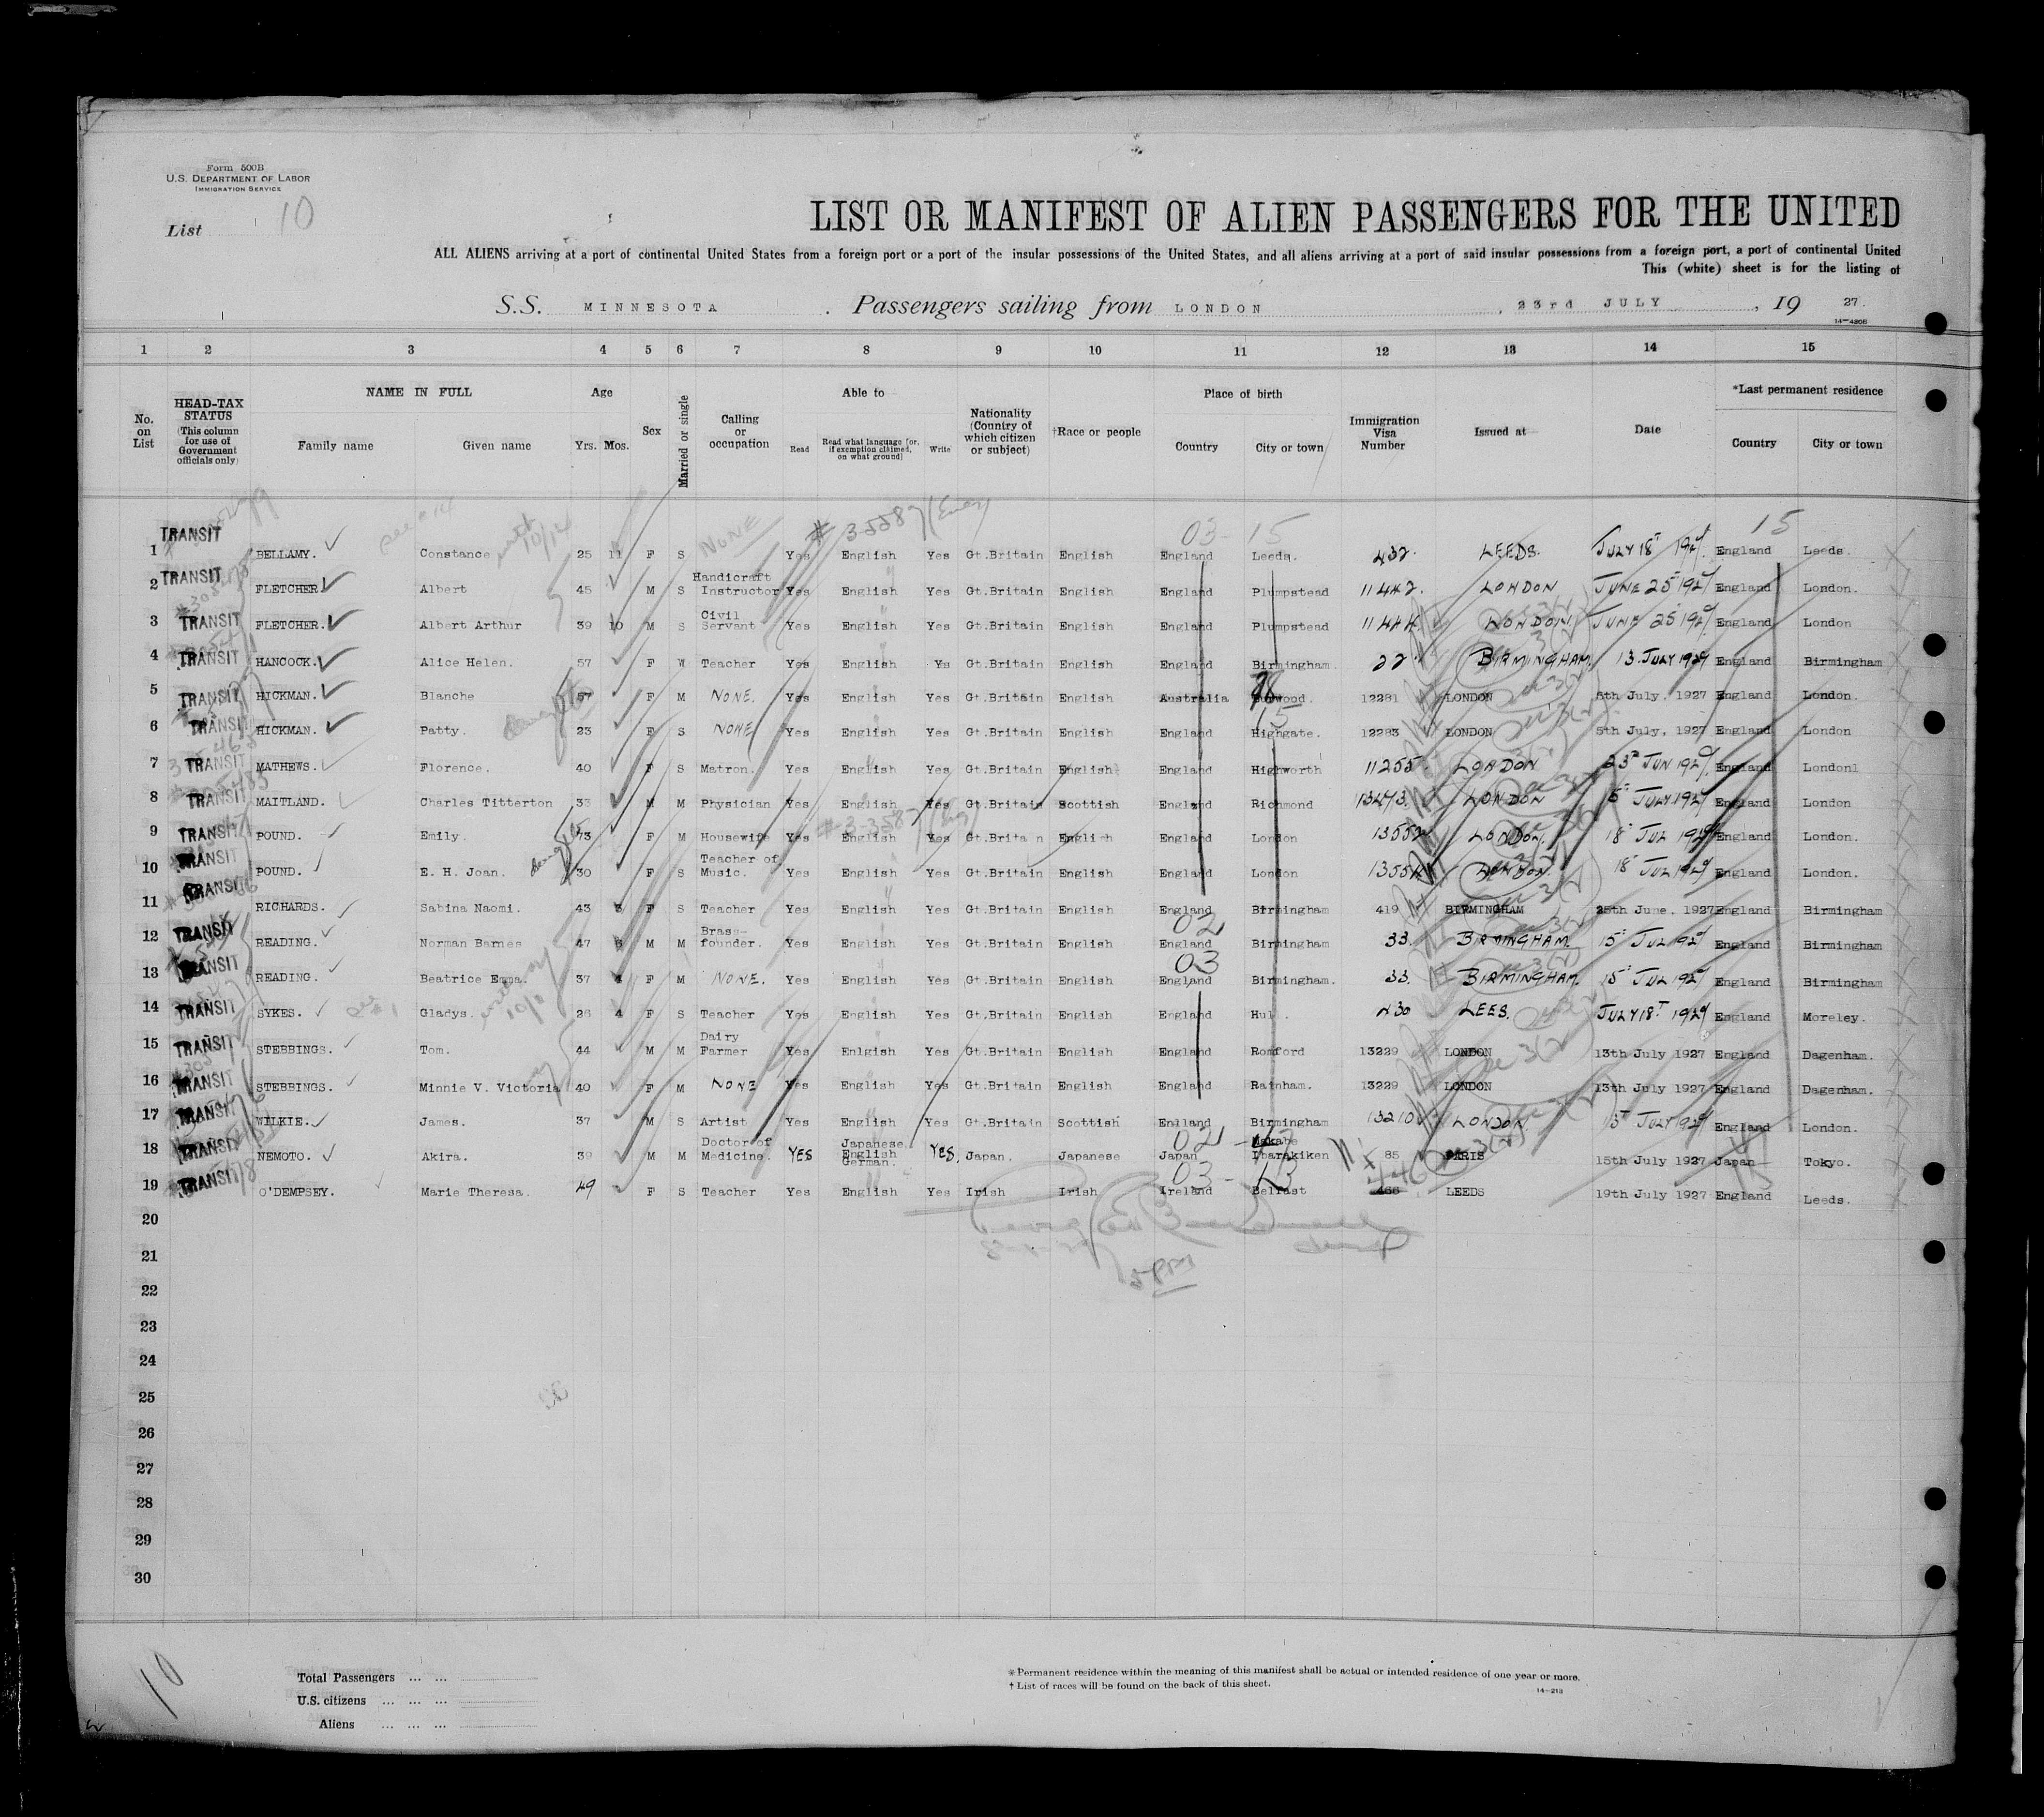 Form 500B
U.S. DEPARTMENT OF LABOR
IMMIGRATION SERVICE
List 10
LIST OR MANIFEST OF ALIEN PASSENGERS FOR THE UNITED
ALL ALIENS arriving at a port of continental United States from a foreign port or a port of the insular possessions of the United States, and all aliens arriving at a port of said insular possessions from a foreign port, a port of continental United
This (white) sheet is for the listing of
S.S. MINNESOTA . Passengers sailing from LONDON , 23rd JULY , 19 27.
14—420B
1 2 3 4 5 6 7 8 9 10 11 12 13 14 15
No. on List
HEAD-TAX STATUS (This column for use of Government officials only)
NAME IN FULL
Family name Given name
Age
Yrs. Mos.
Sex
Married or single
Calling or occupation
Able to
Read Read what language [or, if exemption claimed, on what ground] Write
Nationality (Country of which citizen or subject)
†Race or people
Place of birth
Country City or town
Immigration Visa Number
Issued at
Date
*Last permanent residence
Country City or town
03-15 15
1 TRANSIT BELLAMY. Constance 25 11 F S NONE Yes English Yes Gt.Britain English England Leeds. 432. LEEDS. JULY 18T 1927. England Leeds.
2 TRANSIT FLETCHER Albert 45 M S Handicraft Instructor Yes English Yes Gt.Britain English England Plumpstead 11442. LONDON JUNE 25 1927 England London.
3 TRANSIT FLETCHER. Albert Arthur 39 10 M S Civil Servant Yes English Yes Gt.Britain English England Plumpstead 11444 LONDON. JUNE 25 1927. England London
4 TRANSIT HANCOCK. Alice Helen. 57 F W Teacher Yes English Ys Gt.Britain English England Birmingham 22. BIRMINGHAM. 13. JULY 1927 England Birmingham
5 TRANSIT HICKMAN. Blanche 57 F M NONE. Yes English Yes Gt.Britain English Australia 12281 LONDON 5th July. 1927 England London.
6 TRANSIT HICKMAN. Patty. 23 F S NONE Yes English Yes Gt.Britain English England Highgate. 12283 LONDON 5th July, 1927 England London
7 TRANSIT MATHEWS. Florence. 40 F S Matron. Yes English Yes Gt.Britain English England Highworth 11255. LONDON 23D JUN 1927. England London
8 TRANSIT MAITLAND. Charles Titterton 33 M M Physician Yes English Yes Gt.Britain Scottish England Richmond 13473. LONDON 15 JULY 1927 England London
9 TRANSIT POUND. Emily. 73 F M Housewife Yes English Yes Gt.Britain English England London 13552 LONDON. 18 JUL 1927 England London.
10 TRANSIT POUND. E. H. Joan. 30 F S Teacher of Music. Yes English Yes Gt.Britain English England London 13554 LONDON. 18 JUL 1927 England London.
11 TRANSIT RICHARDS. Sabina Naomi. 43 F S Teacher Yes English Yes Gt.Britain English England Birmingham 419 BIRMINGHAM 25th June. 1927 England Birmingham
02
12 TRANSIT READING. Norman Barnes 47 6 M M Brass-founder. Yes English Yes Gt.Britain English England Birmingham 33. BIRMINGHAM. 15 JUL 1927 England Birmingham
03
13 TRANSIT READING. Beatrice Emma. 37 4 F M NONE. Yes English Yes Gt.Britain English England Birmingham. 33. BIRMINGHAM. 15 JUL 1927 England Birmingham
14 TRANSIT SYKES. Gladys. 26 4 F S Teacher Yes English Yes Gt.Britain English England Hull. 430 LEES. JULY 18T 1927 England Moreley.
15 TRANSIT STEBBINGS. Tom. 44 M M Dairy Farmer Yes Enlgish Yes Gt.Britain English England Romford 13229 LONDON 13th July 1927 England Dagenham.
16 TRANSIT STEBBINGS. Minnie V. Victoria 40 F M NONE Yes English Yes Gt.Britain English England Rainham. 13229 LONDON 13th July 1927 England Dagenham.
17 TRANSIT WILKIE. James. 37 M S Artist Yes English Yes Gt.Britain Scottish Enlland Birmingham 13210 LONDON. 13T JULY 1927 England London.
18 TRANSIT NEMOTO. Akira. 39 M M Doctor of Medicine. YES Japanese English German. YES. Japan. Japanese Japan Makabe Ibarakiken 85 PARIS 15th July 1927 Japan Tokyo.
19 TRANSIT O'DEMPSEY. Marie Theresa. 49 F S Teacher Yes English Yes Irish Irish Ireland Belfast 466 LEEDS 19th July 1927 England Leeds.
20
5 PM
21
22
23
24
25
26
27
28
29
30
10
Total Passengers ... ...
U.S. citizens ... ... ...
Aliens ... ... ...
* Permanent residence within the meaning of this manifest shall be actual or intended residence of one year or more.
† List of races will be found on the back of this sheet.
14—213